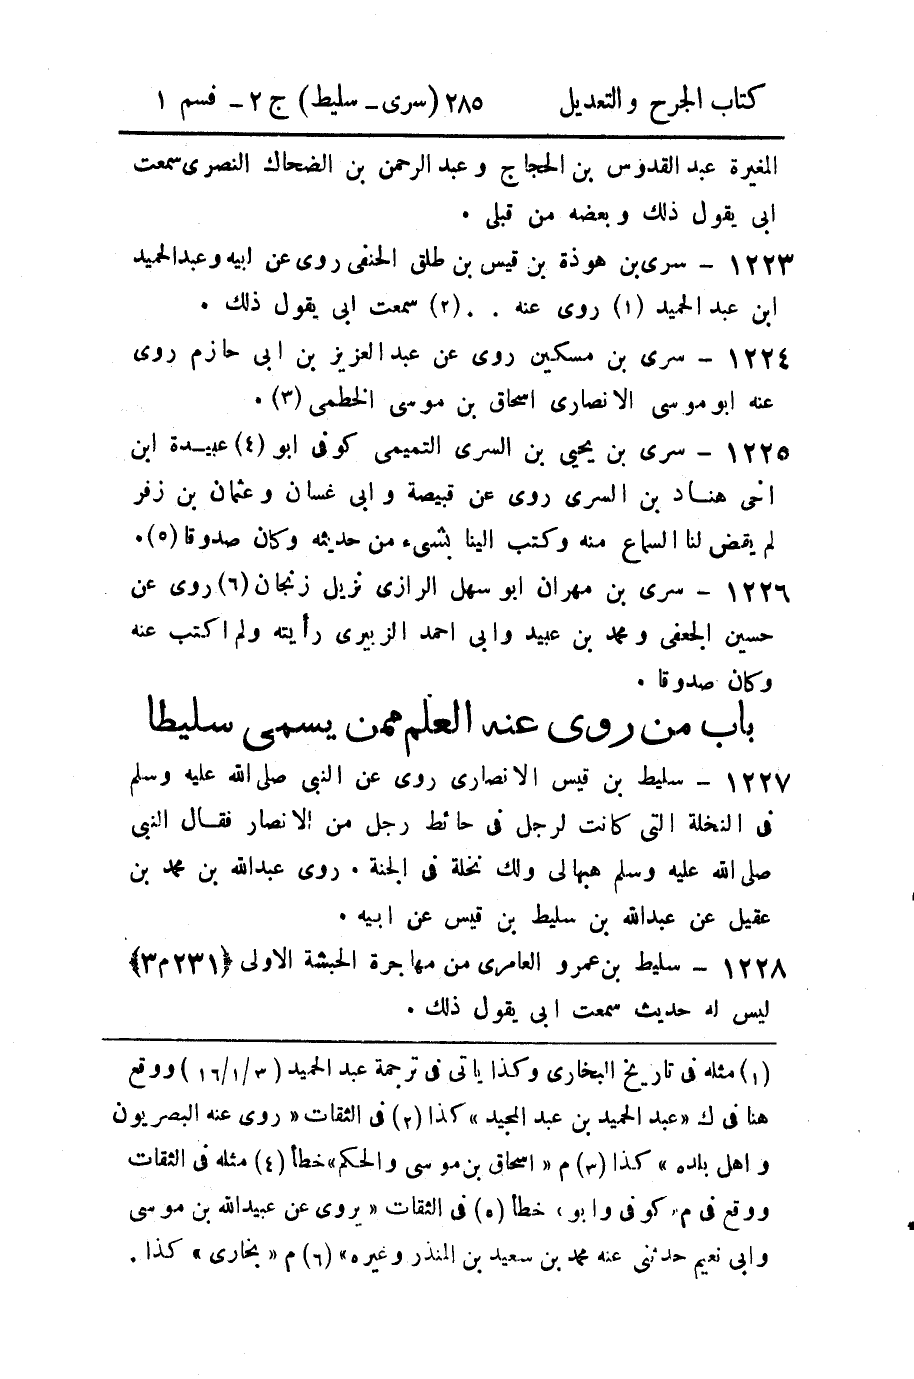 كتاب الجرح والتعديل ٢٨٥ (سرى ـ سليط) ج ٢ ـ قسم ١
المغيرة عبد القدوس بن الحجاج و عبد الرحمن بن الضحاك النصرى سمعت
ابى يقول ذلك وبعضه من قبلى .
١٢٢٣ ـ سرى بن هوذة بن قيس بن طلق الحنفى روى عن ابيه وعبد الحميد
ابن عبد الحميد (١) روى عنه . . (٢) سمعت ابى يقول ذلك .
١٢٢٤ ـ سرى بن مسكين روى عن عبد العزيز بن ابى حازم روى
عنه ابو موسى الانصارى اسحاق بن موسى الخطمى (٣) .
١٢٢٥ ـ سرى بن يحيى بن السرى التميمى كوفى ابو (٤) عبيدة ابن
اخى هناد بن السرى روى عن قبيصة و ابى غسان وعثمان بن زفر
لم يقض لنا السماع منه وكتب الينا بشىء من حديثه وكان صدوقا (٥) .
١٢٢٦ ـ سرى بن مهران ابو سهل الرازى نزيل زنجان (٦) روى عن
حسين الجعفى و محمد بن عبيد وابى احمد الزبيرى رأيته ولم اكتب عنه
وكان صدوقا .
باب من روى عنه العلم ممن يسمى سليطا
١٢٢٧ ـ سليط بن قيس الانصارى روى عن النبى صلى الله عليه وسلم
فى النخلة التى كانت لرجل فى حائط رجل من الانصار فقال النبى
صلى الله عليه وسلم هبهالى ولك نخلة فى الجنة . روى عبدالله بن محمد بن
عقيل عن عبدالله بن سليط بن قيس عن ابيه .
١٢٢٨ ـ سليط بن عمرو العامرى من مهاجرة الحبشة الاولى ﴿٢٣١م٣﴾
ليس له حديث سمعت ابى يقول ذلك .
(١) مثله فى تاريخ البخارى وكذا ياتى فى ترجمة عبد الحميد (١٦/١/٣) ووقع
هنا فى ك «عبد الحميد بن عبد المجيد» كذا (٢) فى الثقات «روى عنه البصريون
و اهل بلده» كذا (٣) م «اسحاق بن موسى والحكم» خطأ (٤) مثله فى الثقات
ووقع فى م، كوفى وابو، خطأ (٥) فى الثقات «يروى عن عبيدالله بن موسى
وابى نعيم حدثنى عنه محمد بن سعيد بن المنذر وغيره» (٦) م «بخارى» كذا .